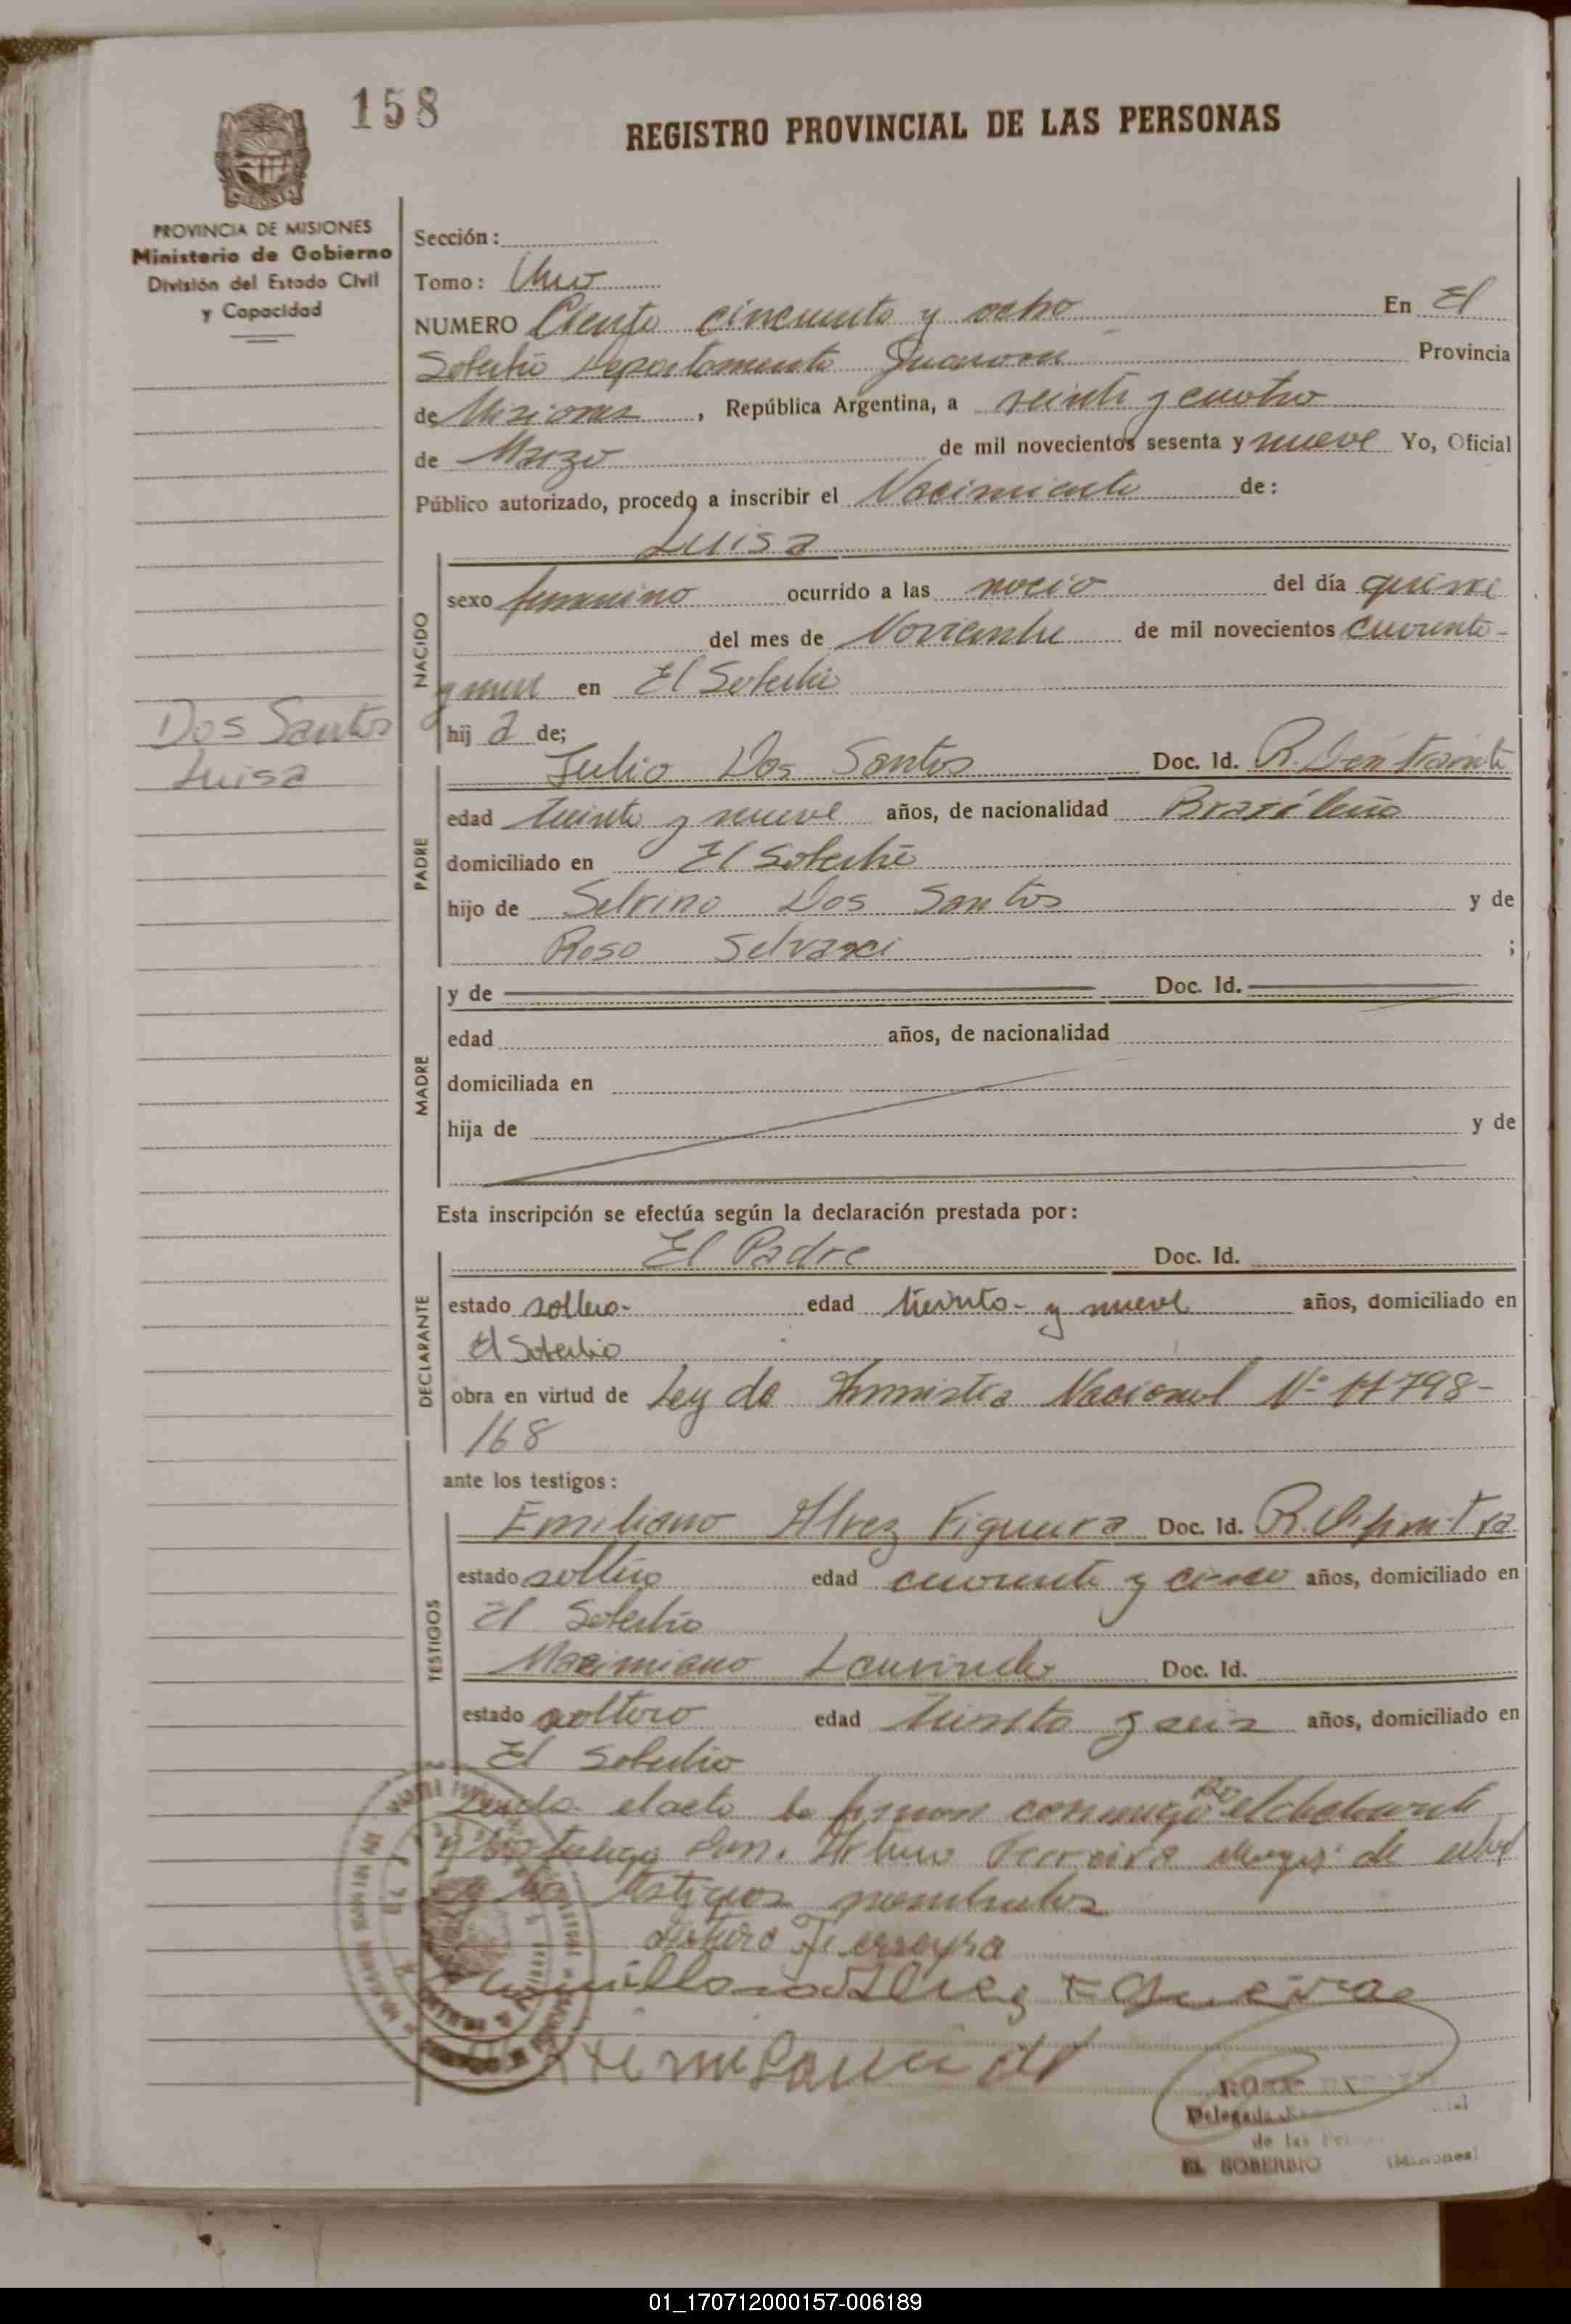 158
REGISTRO PROVINCIAL DE LAS PERSONAS
PROVINCIA DE MISIONES
Ministerio de Gobierno
División del Estado Civil
y Capacidad
Sección:
Tomo: Uno
NUMERO Ciento cincuenta y ocho En El
Soberbio Departamento Guarani Provincia
de Misiones, República Argentina, a veinte y cuatro
de Marzo de mil novecientos sesenta y nueve Yo, Oficial
Público autorizado, procedo a inscribir el Nacimiento de:
Luisa
NACIDO
sexo femenino ocurrido a las del día quince
del mes de Noviembre de mil novecientos cuarenta
y nueve en El Soberbio
hij a de;
Dos Santos
Luisa
PADRE
Julio Dos Santos Doc. Id. R.
edad treinta y nueve años, de nacionalidad Brasileña
domiciliado en El Soberbio
hijo de Selvino Dos Santos y de
Rosa ;
MADRE
y de Doc. Id.
edad años, de nacionalidad
domiciliada en
hija de y de
Esta inscripción se efectúa según la declaración prestada por:
DECLARANTE
El Padre Doc. Id.
estado soltero- edad treinta- y nueve años, domiciliado en
El Soberbio
obra en virtud de Ley de Amnistia Nacional Nº 17798-
168
ante los testigos:
TESTIGOS
Emiliano Alvez Figueira Doc. Id. R.
estado soltero edad cuarenta y cinco años, domiciliado en
El Soberbio
Maximiano Laurindo Doc. Id.
estado soltero edad treinta y seis años, domiciliado en
El Soberbio
Leida el acta la firman conmigo el declarante
Arturo Ferreira de edad
y los testigos nombrados
Arturo Ferreyra
Delegada
de las
EL SOBERBIO (Misiones)
01_170712000157-006189